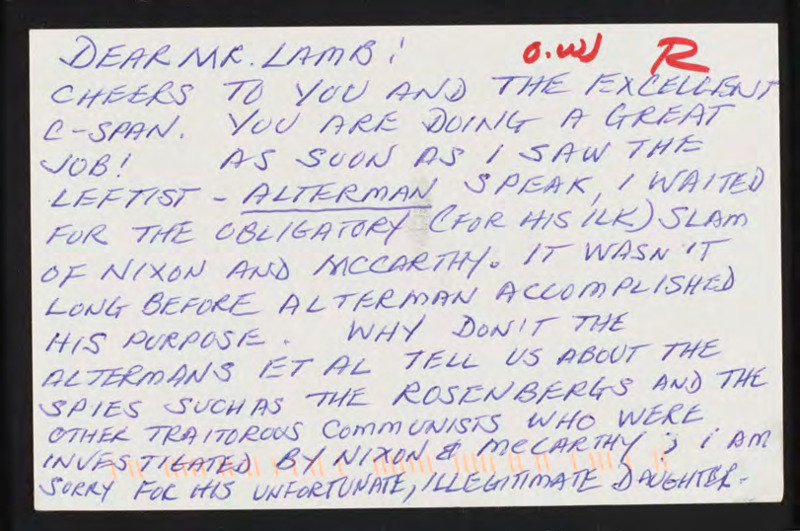 DEAR MR. LAMB! O.W R
CHEERS TO YOU AND THE EXCELLENT
C-SPAN. YOU ARE DOING A GREAT
JOB! AS SOON AS I SAW THE
LEFTIST - ALTERMAN SPEAK, I WAITED
FOR THE OBLIGATORY (FOR HIS ILK) SLAM
OF NIXON AND MCCARTHY. IT WASN'T
LONG BEFORE ALTERMAN ACCOMPLISHED
HIS PURPOSE. WHY DON'T THE
ALTERMANS ET AL TELL US ABOUT THE
SPIES SUCH AS THE ROSENBERGS AND THE
OTHER TRAITOROUS COMMUNISTS WHO WERE
INVESTIGATED BY NIXON & MCCARTHY; I AM
SORRY FOR HIS UNFORTUNATE, ILLEGITIMATE DAUGHTER.